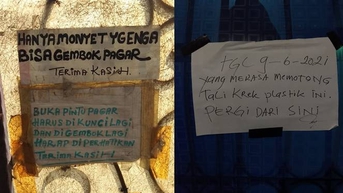 HANYA MONYET YG ENGA
BISA GEMBOK PAGAR
TERIMA KASIH.
BUKA PINTU PAGAR
HARUS DI KUNCI LAGI
DAN DI GEMBOK LAGI
HARAP DI PERHATIKAN
TERIMA KASIH.
TGL 9-6-2021
yang MERASA MEMOTONG
TALI KREK PLASTIK INI.
PERGI DARI SINI